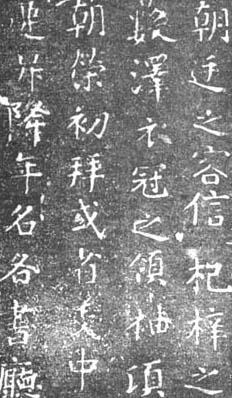 朝廷之容信杞梓之
藪澤衣冠之領袖頃
朝榮初拜或省美中
遷升降年名各書廳